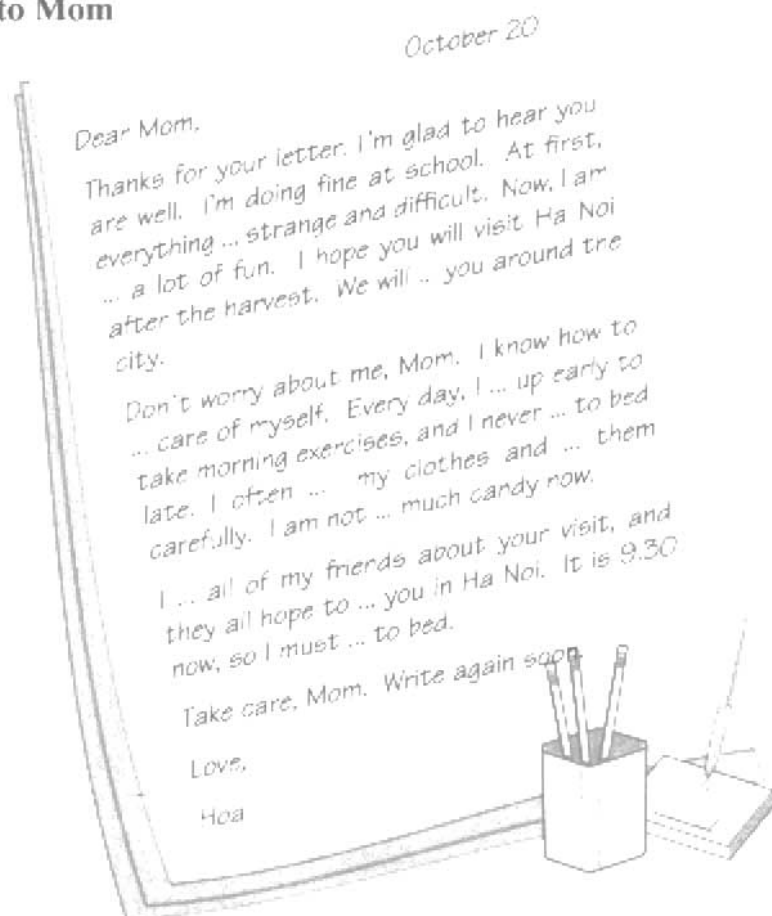 to Mom
October 20
Dear Mom,
Thanks for your letter. I'm glad to hear you
are well. I'm doing fine at school. At first,
everything ... strange and difficult. Now, I am
... a lot of fun. I hope you will visit Ha Noi
after the harvest. We will .. you around the
city.
Don't worry about me, Mom. I know how to
... care of myself. Every day, I ... up early to
take morning exercises, and I never ... to bed
late. I often ... my clothes and ... them
carefully. I am not ... much candy now.
I ... all of my friends about your visit, and
they all hope to ... you in Ha Noi. It is 9.30
now, so I must ... to bed.
Take care, Mom. Write again soon.
Love,
Hoa